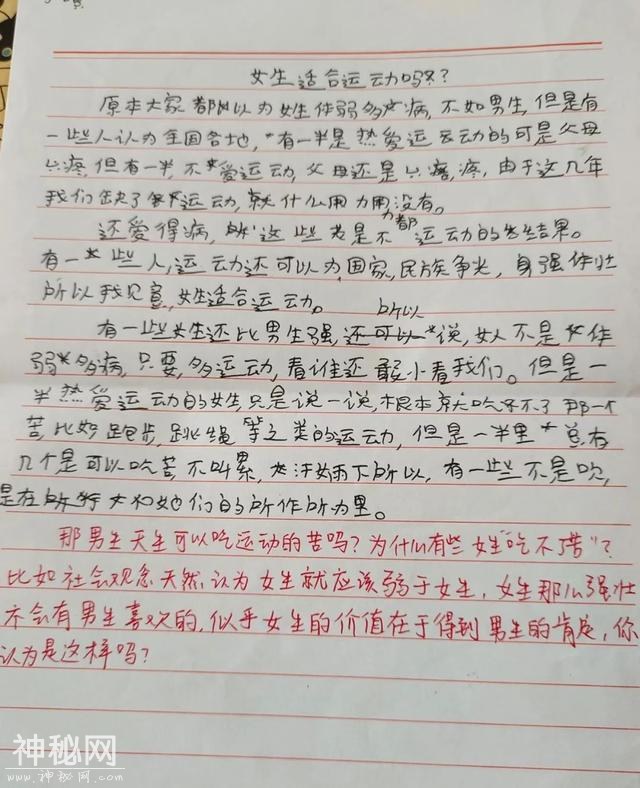 女生适合运动吗?
原本大家都以为女生体弱多病,不如男生,但是有
一些人认为全国各地,有一半是热爱运动的可是父母
心疼,但有一半,不爱运动,父母还是心疼,由于这几年
我们缺了运动,就什么用力都没有。
还爱得病,这些都是不运动的结果。
有一些人,运动还可以为,国家,民族争光,身强体壮
所以我见意,女生适合运动。
有一些女生还比男生强,所以说,女人不是体
弱多病,只要,多运动,看谁还敢小看我们。但是一
半热爱运动的女生,只是说一说,根本就吃不了那一个
苦,比如跑步,跳绳等之类的运动,但是一半里总有
几个是可以吃苦不叫累,汗如雨下所以,有一些不是吹,
是在她们的所作所为里。
那男生天生可以吃运动的苦吗?为什么有些女生“吃不了苦”?
比如社会观念天然认为女生就应该弱于女生,女生那么强壮
不会有男生喜欢的,似乎女生的价值在于得到男生的肯定,你
认为是这样吗?
神秘网
www.神秘网.com